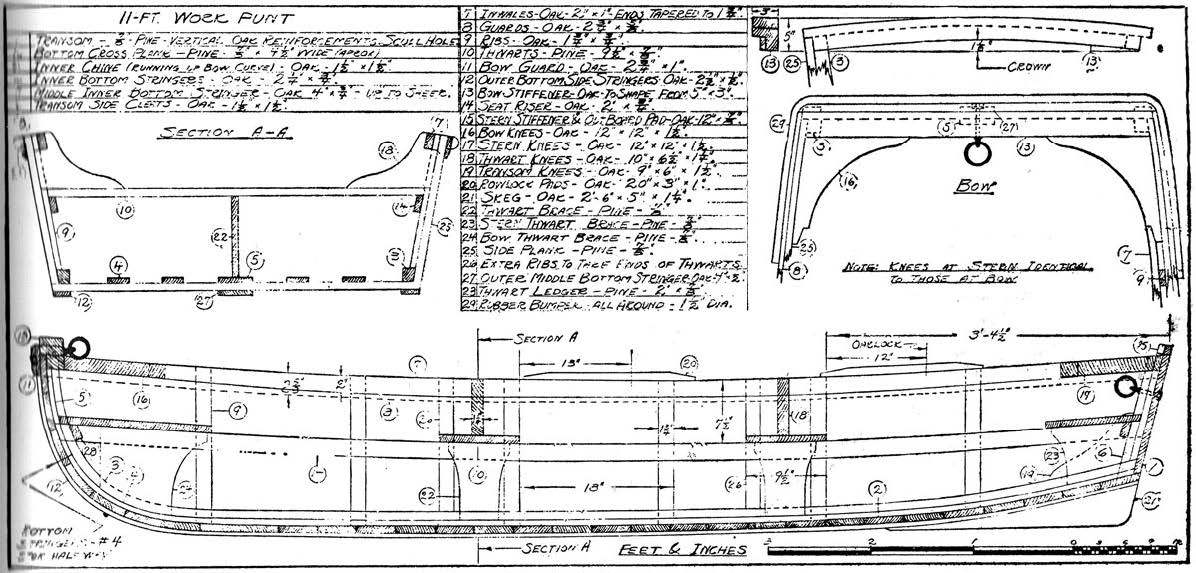 11-FT. WORK PUNT
TRANSOM - 7/8" - PINE - VERTICAL OAK REINFORCEMENTS. SCULL HOLE
BOTTOM CROSS PLANK - PINE - 4 1/2" WIDE (APROX)
INNER CHINE (RUNNING UP BOW CURVE) - OAK - 1 1/2" × 1 1/2"
INNER BOTTOM STRINGERS - OAK -
MIDDLE INNER BOTTOM STRINGER - OAK 4" × 3/4" - UP TO SHEER.
TRANSOM SIDE CLEITS - OAK - 1 1/2" × 1 1/2".
7 INWALES - OAK - 2" × 1" ENDS TAPERED TO
8 GUARDS - OAK -
9 RIBS - OAK -
10 THWARTS - PINE - 9 1/2" ×
11 BOW GUARD - OAK - × 1".
12 OUTER BOTTOM, SIDE STRINGERS OAK -
13 BOW STIFFENER - OAK - TO SHAPE FROM 5" × 3".
14 SEAT RISER - OAK - 2" × 3/4"
15 STERN STIFFENER & OUTBOARD PAD - OAK - 12" ×
16 BOW KNEES - OAK - 12" × 12" × 1 1/2".
17 STERN KNEES - OAK - 12" × 12" × 1 1/2".
18 THWART KNEES - OAK - 10" × 6 1/2" × 1 1/4".
19 TRANSOM KNEES - OAK - 9" × 6" × 1 1/2"
20 ROWLOCK PADS - OAK - 20" × 3" × 1".
21 SKEG - OAK - 2'-6" × 5" × 1 1/4".
22 THWART BRACE - PINE - 7/8"
23 STERN THWART BRACE - PINE - 7/8"
24 BOW THWART BRACE - PINE - 7/8"
25 SIDE PLANK - PINE - 7/8".
26 EXTRA RIBS TO TAKE ENDS OF THWARTS
27 OUTER MIDDLE BOTTOM STRINGER - OAK - 4" × 1/2"
28 THWART LEDGER - PINE - 2" ×
29 RUBBER BUMPER - ALL AROUND - 1 1/2" DIA.
3"
5"
1 1/2"
CROWN
13 25 3 13
SECTION A-A
7
18
10
14
9
22
25
4
5
3
12
27
29
5
5
27
13
16
BOW
25
8
7
9
NOTE: KNEES AT STERN IDENTICAL
TO THOSE AT BOW
SECTION A
3'-4 1/2"
OARLOCK
13"
12"
20
15
11
5
16
9
2"
3
18
7 1/2"
17
28
10
22
26
9 1/2"
18"
23
19
6
1
2
21
12
BOTTOM
STRINGERS - #4
STOP HALF WAY
SECTION A
FEET & INCHES
2
1
0 3 6 9 12